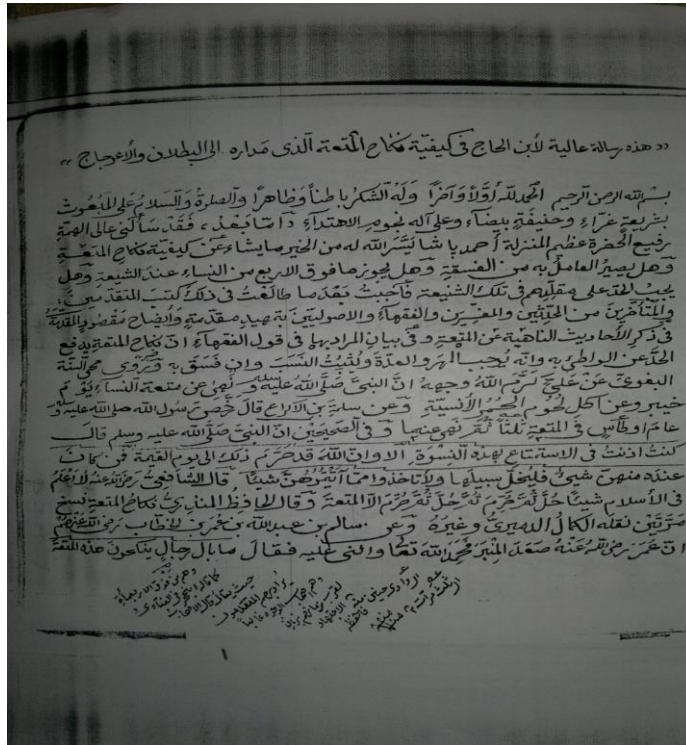 «هذه رسالة عالية لأبن الحاج في كيفية نكاح المتعة الذى مداره الى البطلان والأعوجاج»
بسم الله الرحمن الرحيم الحمد لله أولاً وآخراً وله الشكر باطناً وظاهراً والصلوة والسلام على المبعوث
بشريعة غراء وحنيفة بيضاء وعلى آله نجوم الاهتداء وامّا بعد، فقد سألنى عالى الهمة
رفيع الحضرة عظيم المنزلة أحمد پاشا يسّر الله له من الخير ما يشاء عن كيفية نكاح المتعة
وهل يصير العامل به من الفسقة وهل يجوز ما فوق الاربع من النساء عند الشيعة وهل
يجب الحد على مقلدهم في تلك الشنيعة فأجبت بعد ما طالعت في ذلك كتب المتقدمين
والمتأخرين من المحدثين والمفسرين والفقهاء والاصوليين بتمهيد مقدمة وايضاح مقصود المقدمة
في ذكر الأحاديث الناهية عن المتعة وفي بيان المراد بها في قول الفقهاء انّ نكاح المتعة يدفع
الحد عن الواطئ به وانه يوجب المهر والعدة ويثبت النسب وان فسق به وروى محى السنة
البغوى عن علىّ كرّم الله وجهه انّ النبىّ صلّى الله عليه وسلم نهى عن متعة النساء يوم
خيبر وعن اكل لحوم الحمر الأنسية وعن سلمة بن الاكوع قال رخّص رسول الله صلى الله عليه وسلم
عام اوطاس في المتعة ثلثاً ثمّ نهى عنها وفي الصحيحين انّ النبىّ صلى الله عليه وسلم قال
كنت اذنت في الاستمتاع بهذه النسوة الا وان الله قد حرّم ذلك الى يوم القيمة فمن كان
عنده منهنّ شيئ فليخلّ سبيلها ولا تأخذوا ممّا آتيتموهنّ شيئاً قال الشافعىّ رضى الله عنه لا أعلم
في الأسلام شيئاً حلّ ثمّ حرّم ثمّ حلّ ثمّ حرّم الا المتعة وقال الحافظ المنذرىّ نكاح المتعة نسخ
مرّتين نقله الكمال الدميرىّ وغيره وعن سالم بن عبدالله بن عمر بن الخطاب رضى الله عنهم
انّ عمر رضى الله عنه صعد المنبر فحمد الله تعالى واثنى عليه فقال ما بال رجال ينكحون هذه المتعة